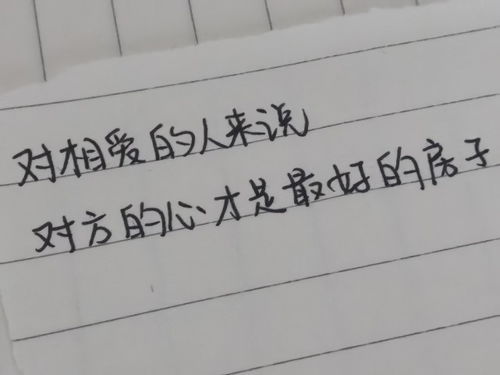 对相爱的人来说
对方的心才是最好的房子